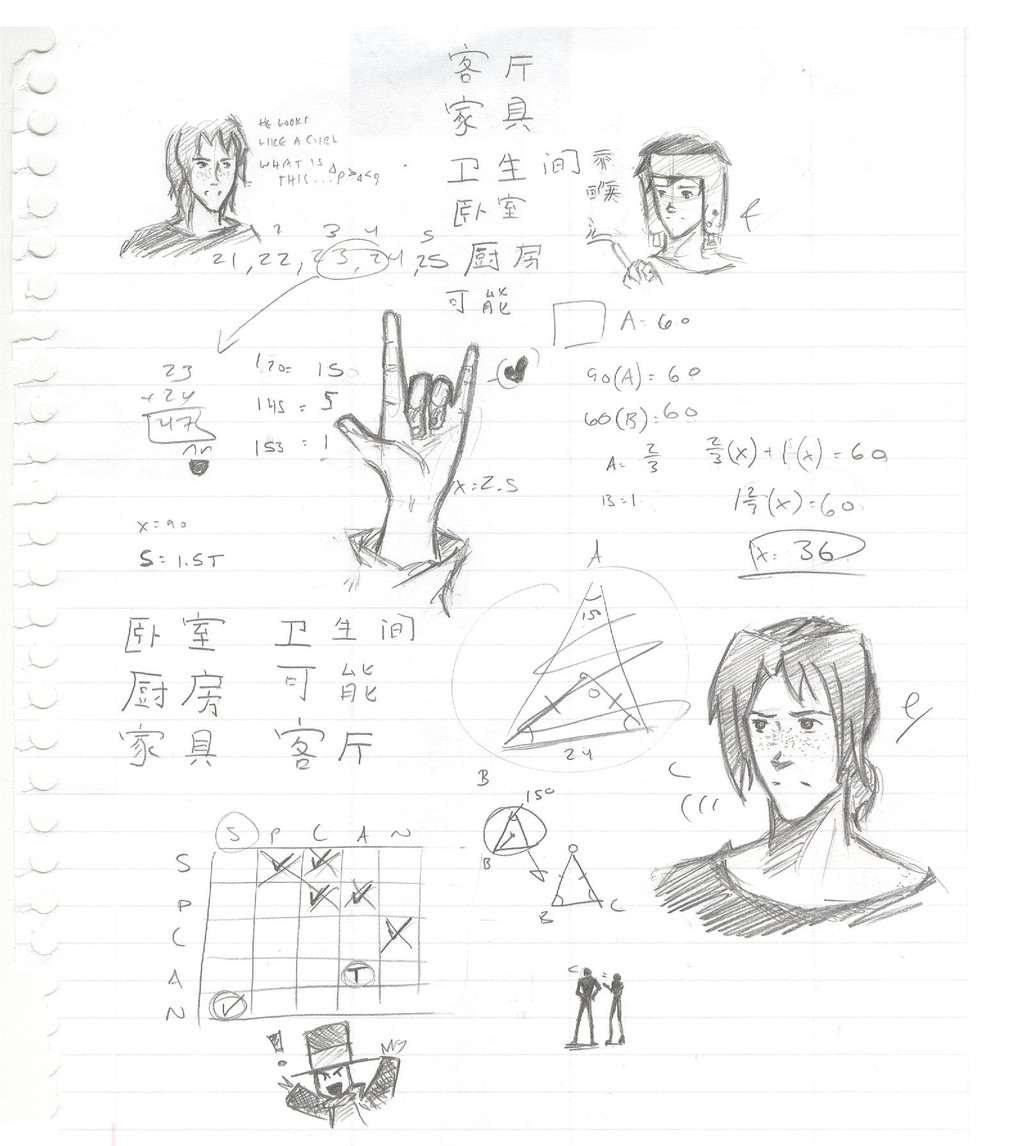 客厅
家具
HE LOOKS
LIKE A GIRL
WHAT IS
THIS...
卫生间
卧室
2 3 4 5
21,22,23,24,25
厨房
可能
A=60
23
+24
47
120= 15
145 = 5
153 = 1
90(A)=60
60(B)=60
A= 2/3
2/3(x)+1(x)=60
B=1
1 2/3(x)=60
x= 36
x=2.5
x=90
S=1.5T
A
150
O
24
B
C
卧室 卫生间
厨房 可能
家具 客厅
150
B
B C
S P C A N
S
P
C
A T
N
!